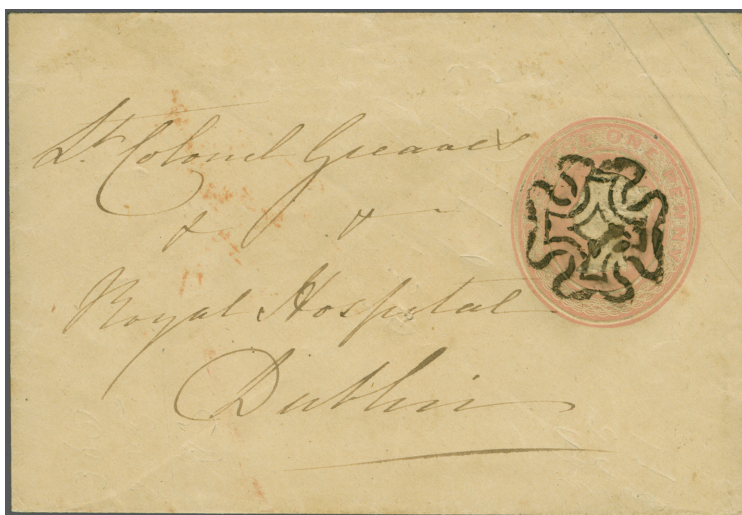 Lt. Colonel Greaves
& &
Royal Hospital
Dublin
ONE PENNY